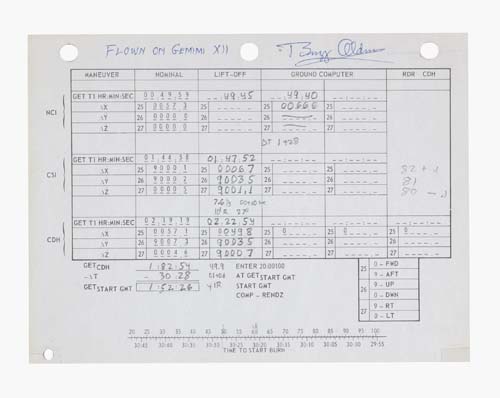 FLOWN ON GEMINI XII Buzz Aldrin
MANEUVER NOMINAL LIFT-OFF GROUND COMPUTER RDR CDH
NCI
GET T1 HR:MIN:SEC 00:49:59 _ _:49:45 _ _:49:40
ΔX 25 00573 25 _ _ _ _ _ 25 00666
ΔY 26 00000 26 _ _ _ _ _ 26
ΔZ 27 00000 27 _ _ _ _ _ 27
DT 1+28
CSI
GET T1 HR:MIN:SEC 01:44:58 01:47:52 _ _:_ _:_ _
ΔX 25 90001 25 00067 25 _ _ _ _ _ 82
ΔY 26 90002 26 90035 26 _ _ _ _ _ 81
ΔZ 27 00005 27 90011 27 _ _ _ _ _ 80
CDH
GET T1 HR:MIN:SEC 02:19:19 02:22:54 _ _:_ _:_ _
ΔX 25 00571 25 00498 25 0 _ _ _ _ 25 0 _ _ _ _
ΔY 26 90073 26 90035 26 _ _ _ _ _
ΔZ 27 00046 27 90007 27 _ _ _ _ _
GET CDH 1:82:54 49.9 ENTER 20:00100
-LT - 30:28 AT GET START GMT
GET START GMT 1:52:26 START GMT
COMP - RENDZ
25 0 - FWD
9 - AFT
26 9 - UP
0 - DWN
27 9 - RT
0 - LT
20 25 30 35 40 45 50 55 60 65 70 75 80 85 90 95 100
30-45 30-40 30-35 30-30 30-25 30-20 30-15 30-10 30-05 30-00 29-55
TIME TO START BURN